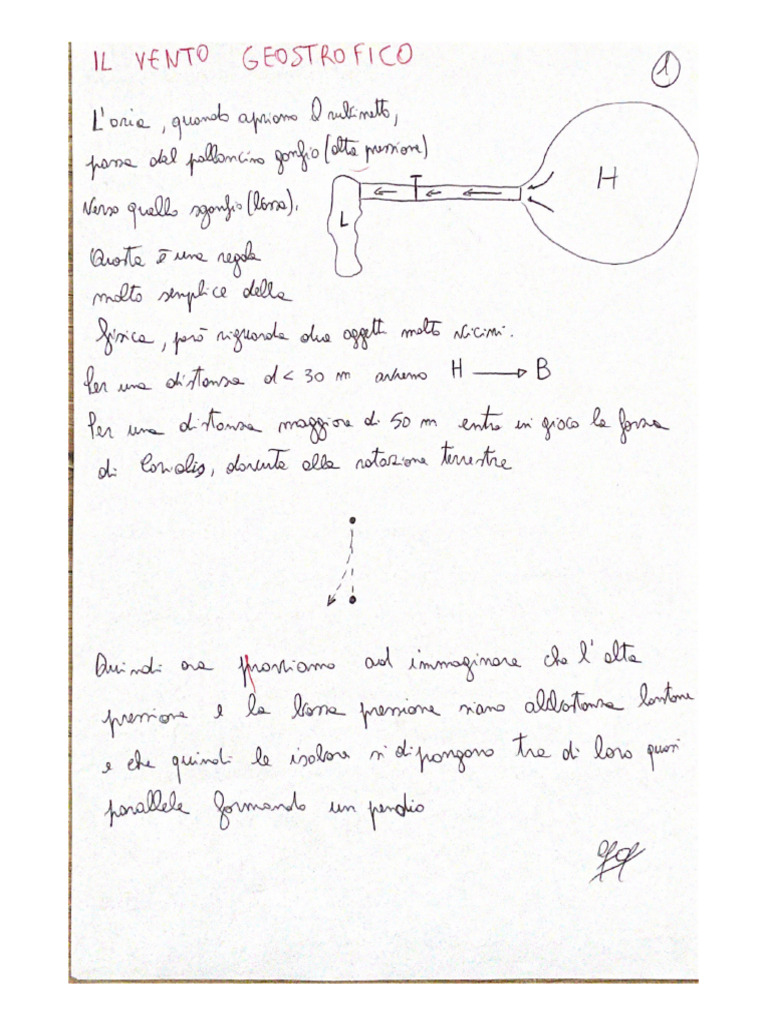 IL VENTO GEOSTROFICO
1
L'aria, quando apriamo il rubinetto,
passa dal palloncino gonfio (alta pressione)
verso quello sgonfio (bassa).
H
L
Questa è una regola
molto semplice della
fisica, però riguarda due oggetti molto vicini.
Per una distanza d < 30 m avremo H → B
Per una distanza maggiore di 50 m entra in gioco la forza
di Coriolis, dovuta alla rotazione terrestre
Quindi ora proviamo ad immaginare che l'alta
pressione e la bassa pressione siano abbastanza lontane
e che quindi le isobare si dipongono tra di loro quasi
parallele formando un pendio